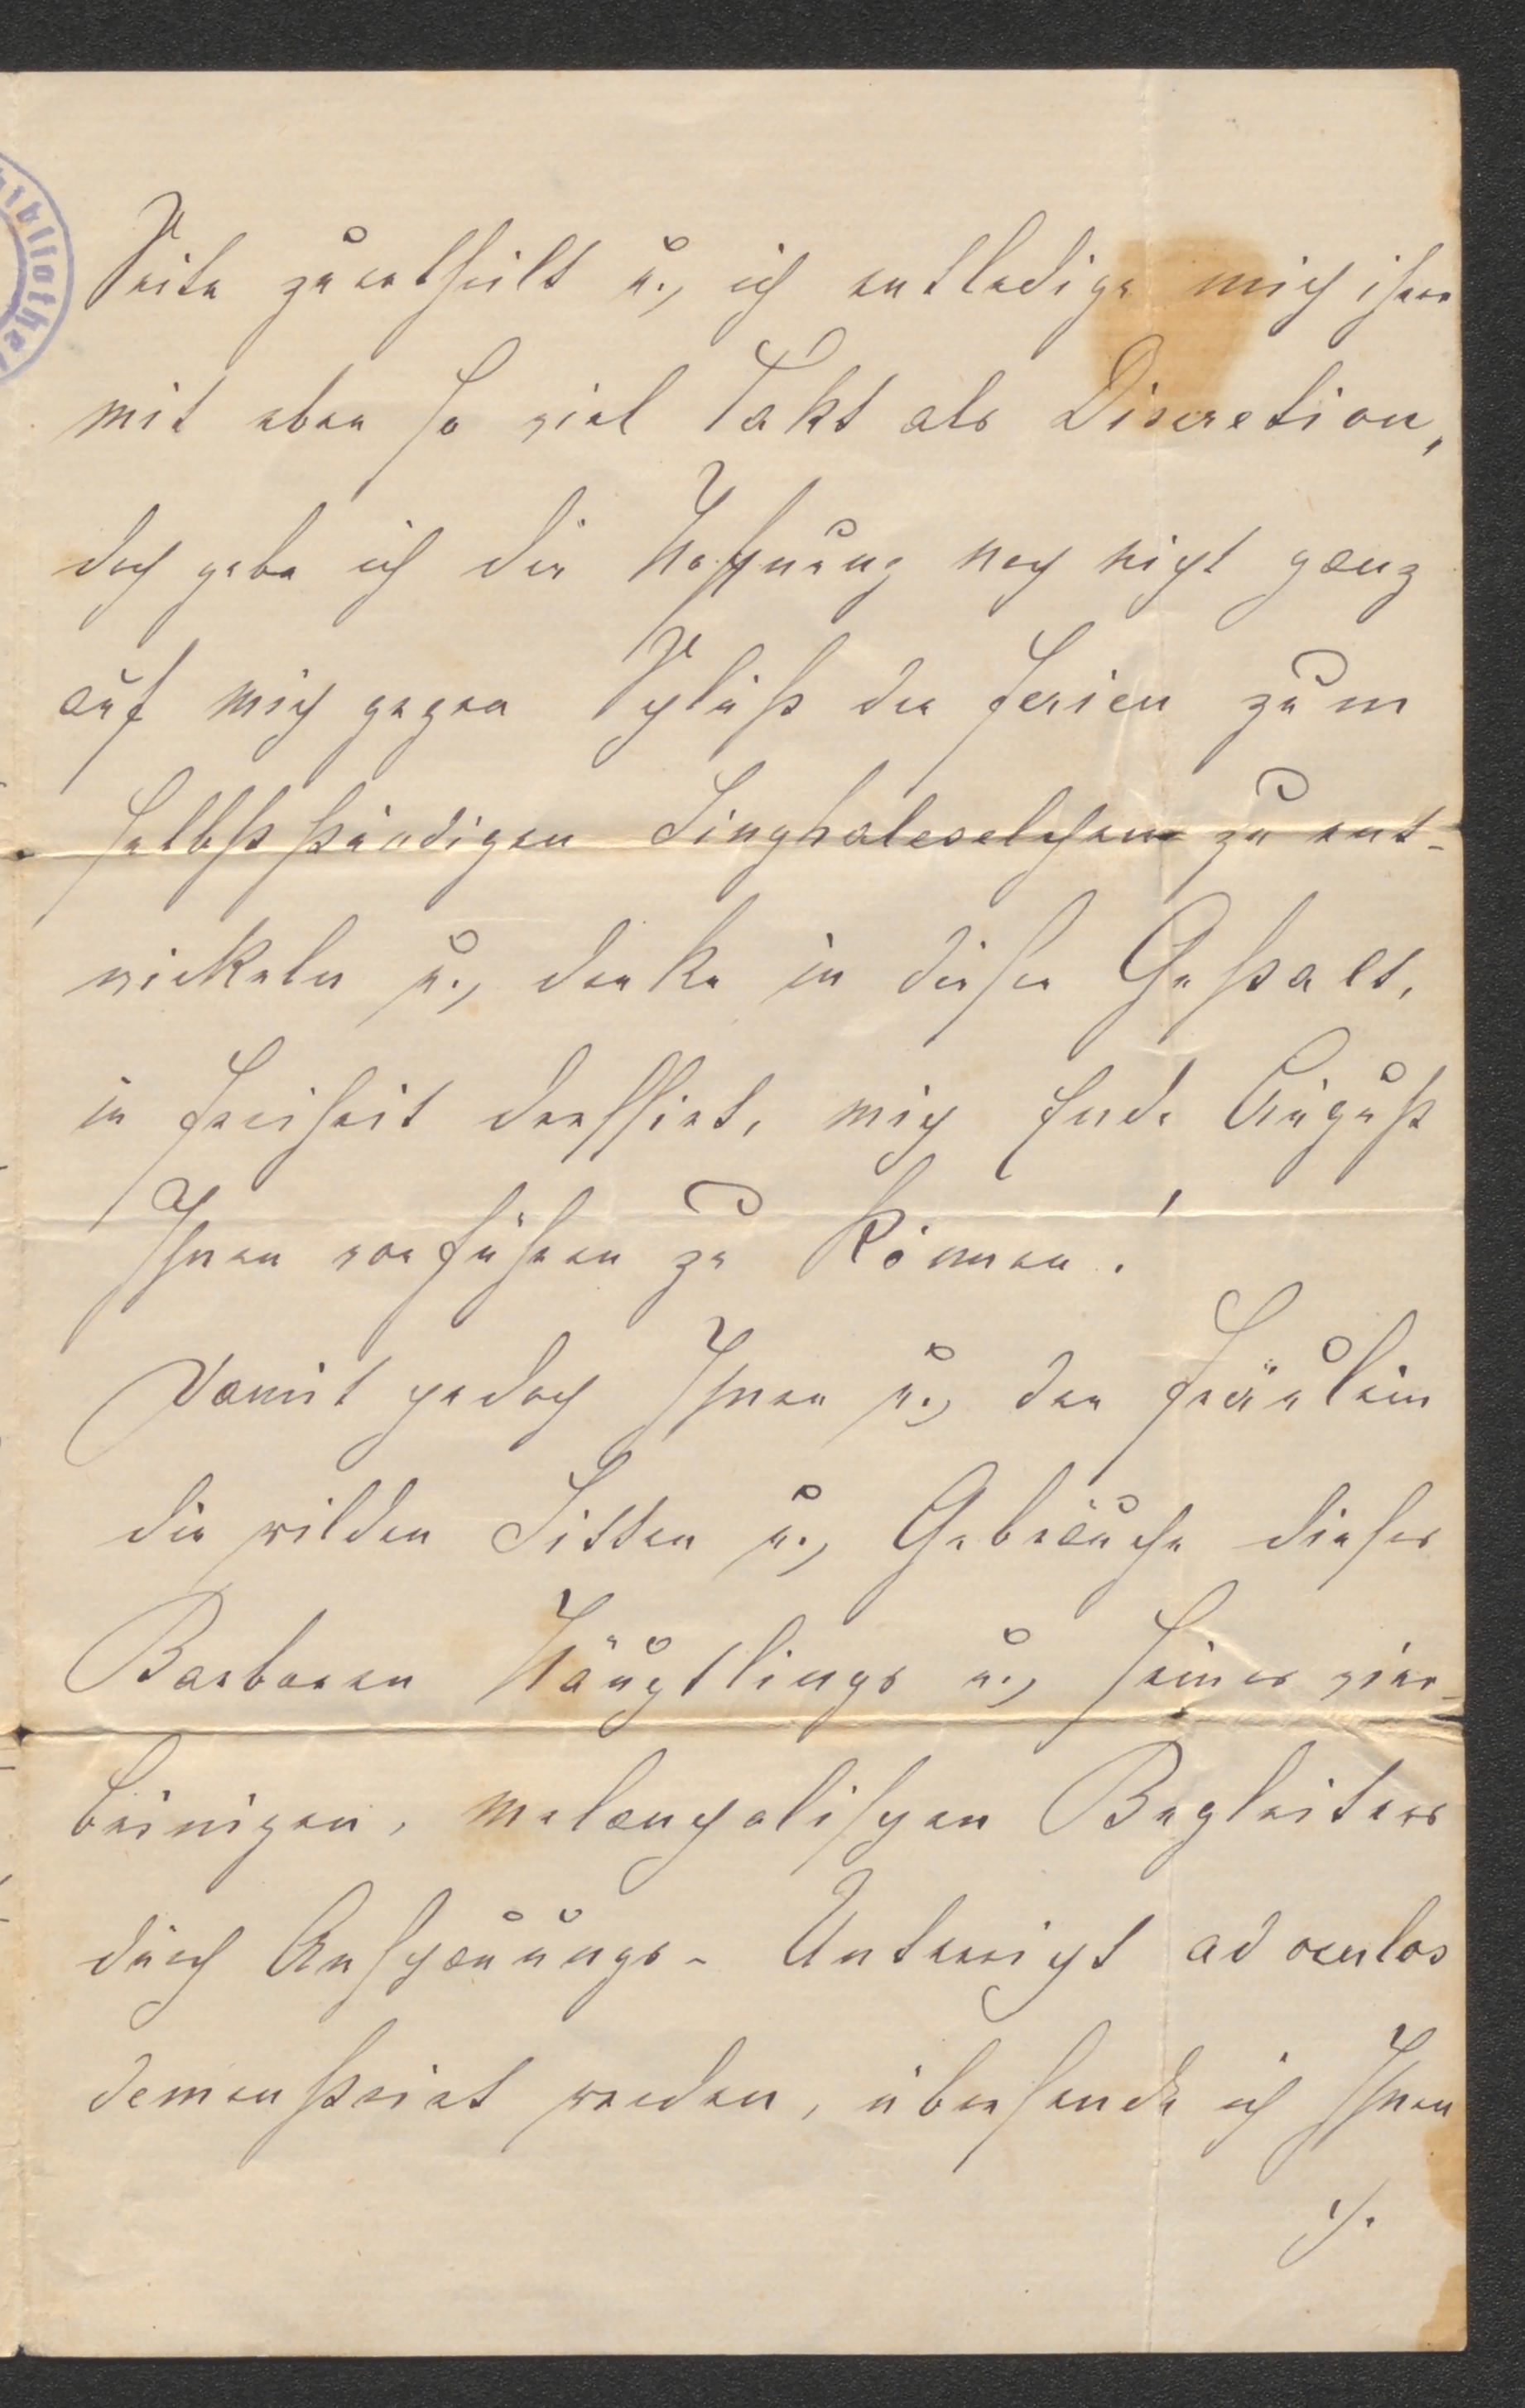 bibliothek
Seite zuertheilt u., ich entledige mich ihrer
mit eben so viel Takt als Discretion,
doch gebe ich die Hoffnung noch nicht ganz
auf mich gegen Schluß der Ferien zum
selbstständigen Singhaleselchen zu ent-
wickeln u., denke in dieser Gestalt,
in Freiheit dressirt, mich Ende August
Ihnen vorführen zu können!
Damit jedoch Ihnen u., den Fräulein
die wilden Sitten u., Gebräuche dieses
Barbaren Häuptlings u., seines vier-
beinigen, melancholischen Begleiters
durch Anschauungs-Unterricht ad oculos
demonstrirt werden, übersende ich Ihnen
./.